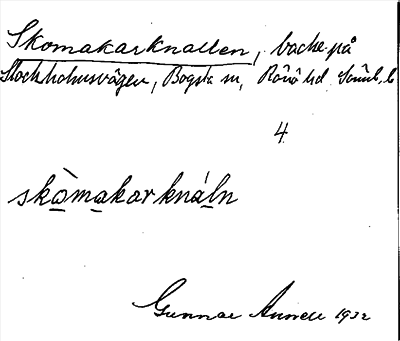 Skomakarknallen, backe på
Stockholmsvägen, Bogsta sn, Rönö hd, Söml. l.
4
skò̲ma̲karkná̲ln
Gunnar Annell 1932